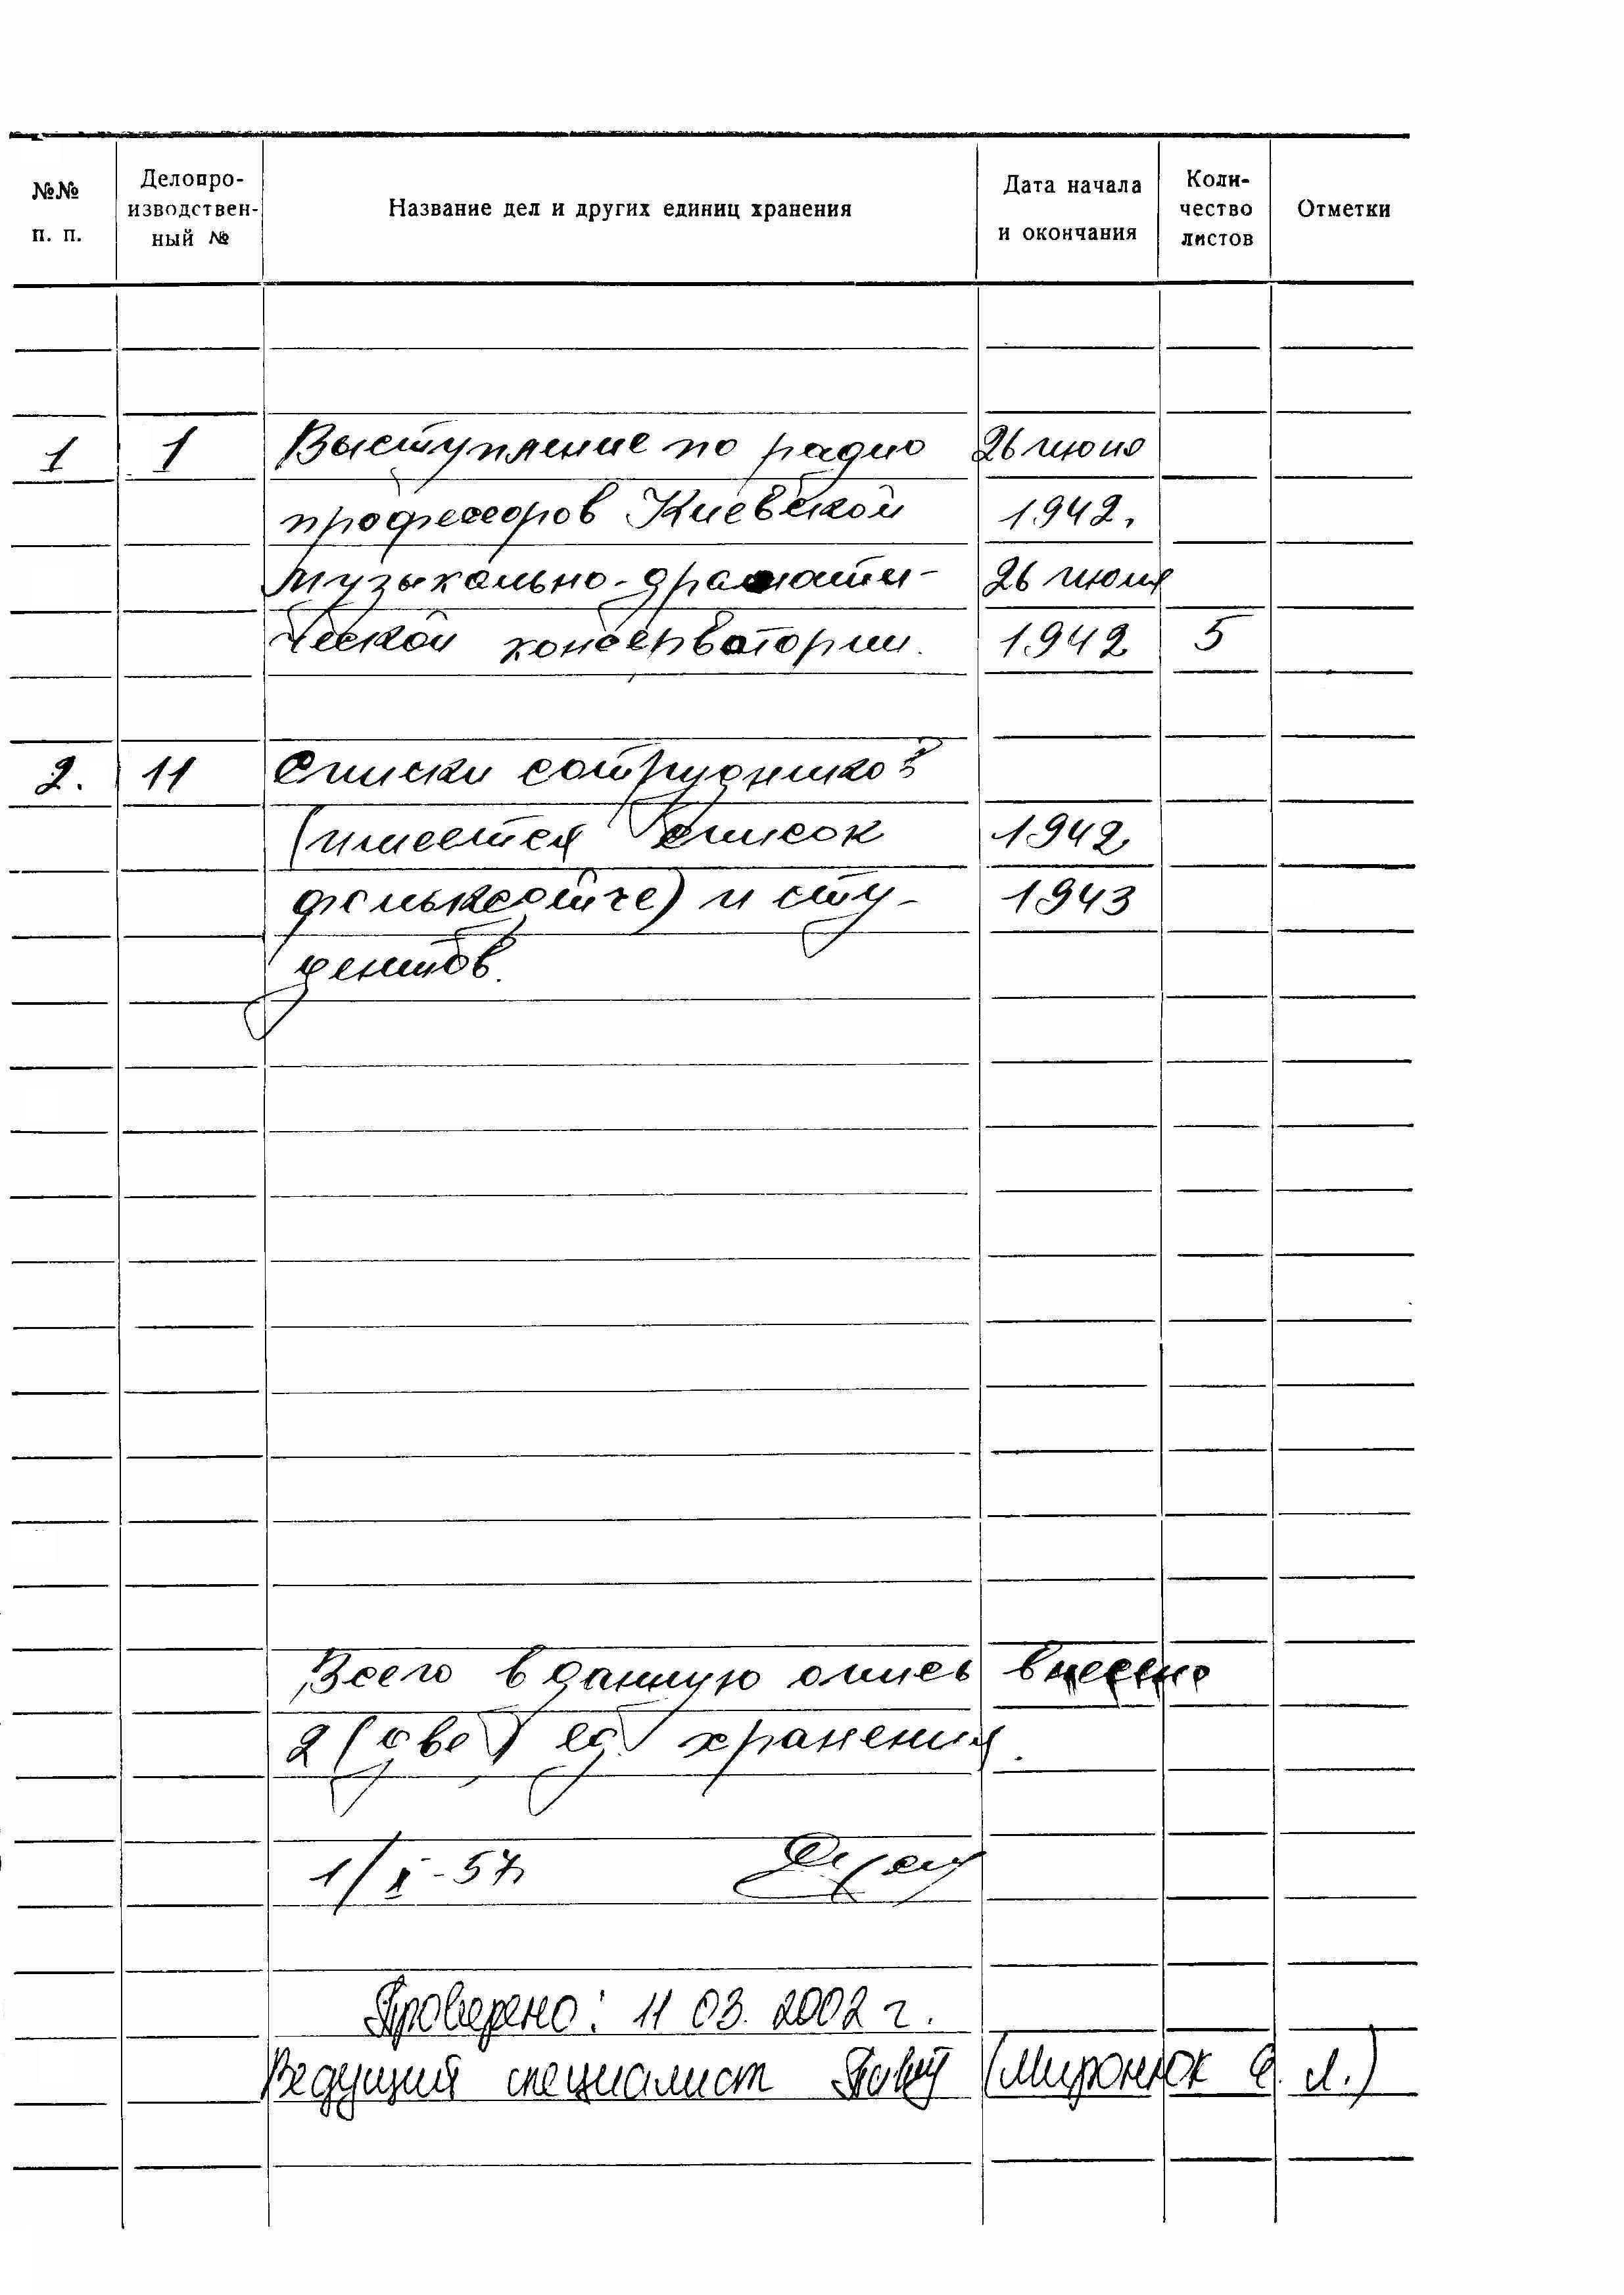 №№ п. п. Делопроизводствен- ный № Название дел и других единиц хранения Дата начала и окончания Коли- чество листов Отметки
1 1 Выступление по радио 26 июня
профессоров Киевской 1942.
музыкально-драмати- 26 июля
ческой консерватории. 1942 5
2. 11 Списки сотрудников
(имеется список 1942
фольксдойче) и сту- 1943
дентов.
Всего в данную опись внесено
2 (две) ед. хранения.
1/X-57г
Проверено: 11 03. 2002 г.
Ведущий специалист (Миронюк Е. Л.)